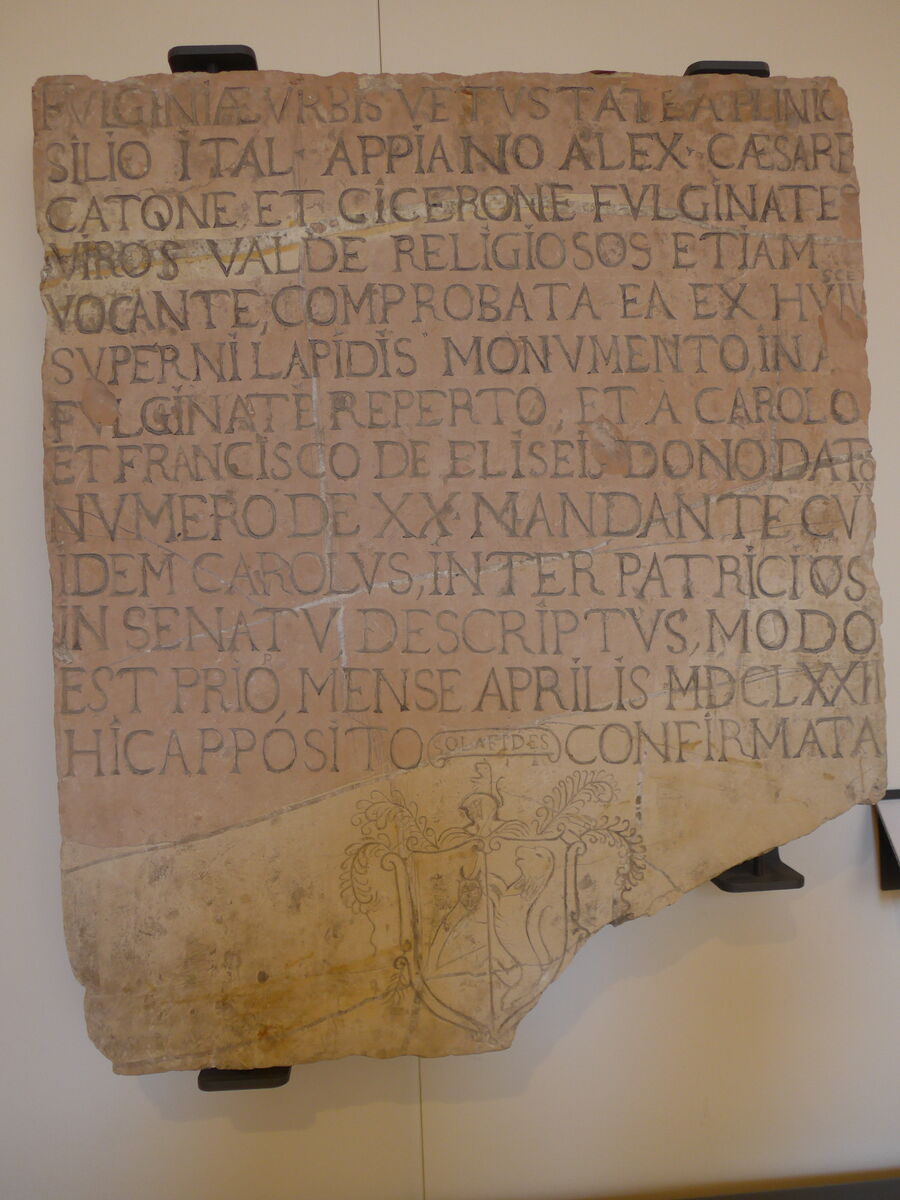 FVLGINIÆ VRBIS VETVSTATE A PLINIO
SILIO ITAL· APPIANO ALEX· CÆSARE
CATONE ET CICERONE FVLGINATES
VIROS VALDE RELIGIOSOS ETIAM
VOCANTE, COMPROBATA EA EX HVIVSCE
SVPERNI LAPIDIS MONVMENTO, IN
FVLGINATE REPERTO, ET A CAROLO
ET FRANCISCO DE ELISEIS DONO DATO
NVMERO DE XX MANDANTE, CVIVS
IDEM CAROLVS, INTER PATRICIOS
IN SENATV DESCRIPTVS, MODO
EST PRIOR, MENSE APRILIS MDCLXXII
HIC APPOSITO CONFIRMATA
SOLA FIDES